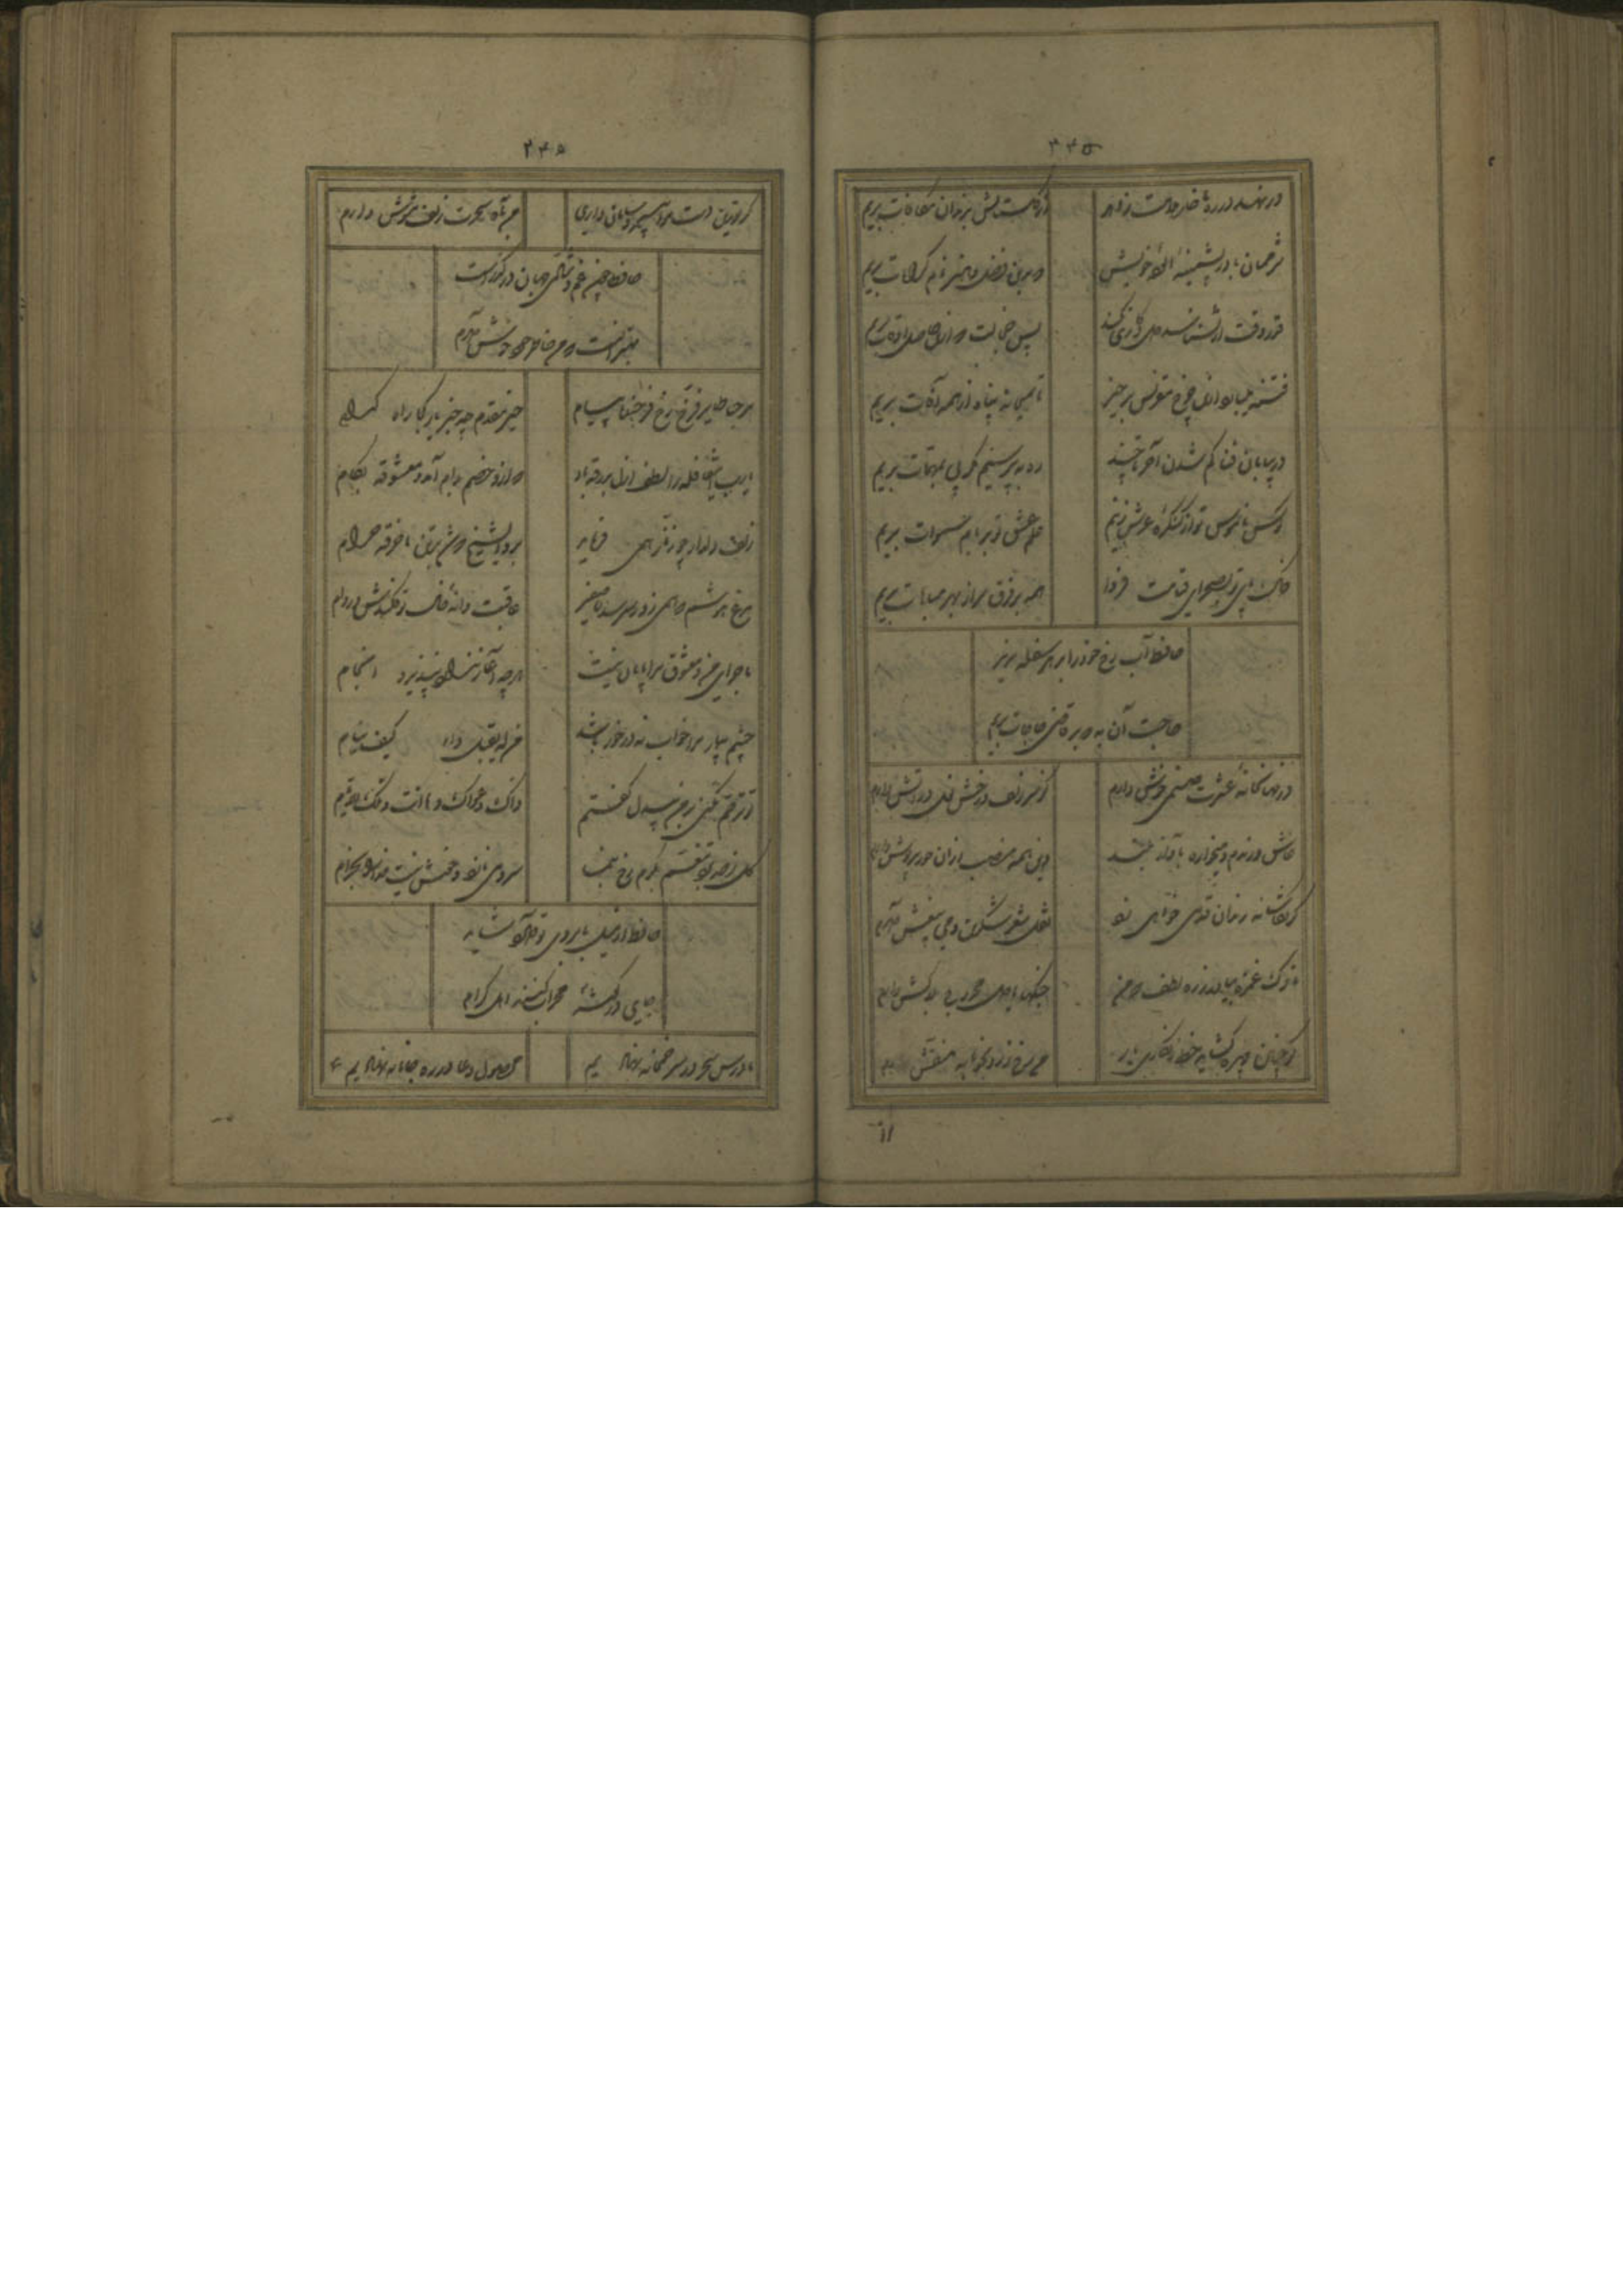 ۲۴۵
ور نهد در ره ما خار ملامت زاهد
از گلستانش بزندان مکافات بریم
شرممان باد ز پشمینه آلوده خویش
گر بدین فضل و هنر نام کرامات بریم
قدر وقت ار نشناسد دل و کاری نکند
بس خجالت که ازین حاصل اوقات بریم
فتنه میبارد ازین سقف مقرنس برخیز
تا بمیخانه پناه از همه آفات بریم
در بیابان فنا گم شدن آخر تا چند
ره بپرسیم مگر پی بمهمات بریم
کوس ناموس تو از کنگره عرش زنیم
علم عشق تو بر بام سموات بریم
خاک کوی تو بصحرای قیامت فردا
همه بر فرق سر از بهر مباهات بریم
حافظ آب رخ خود بر در هر سفله مریز
حاجت آن به که بر قاضی حاجات بریم
در نهانخانه عشرت صنمی خوش دارم
کز سر زلف و رخش نعل در آتش دارم
عاشق و رندم و میخواره بآواز بلند
وین همه منصب از آن حور پریوش دارم
گر بکاشانه رندان قدمی خواهی زد
نقل شعر شکرین و می بیغش دارم
ناوک غمزه بیار و زره زلف که من
جنگها با دل مجروح بلاکش دارم
گر چنین چهره گشاید خط زنگاری یار
من رخ زرد بخونابه منقش دارم
۲۴۵
گر تو زین دست مرا بی سر و سامان داری
من بآه سحرت زلف مشوش دارم
حافظا چون غم و شادی جهان در گذر است
بهتر آنست که من خاطر خود خوش دارم
مرحبا طایر فرخ رخ فرخنده پیام
خیر مقدم چه خبر یار کجا راه کدام
یارب این قافله را لطف ازل بدرقه باد
که ازو خصم بدام آمد و معشوقه بکام
زلف دلدار چو زنار همی فرماید
برو ای شیخ که شد بر تن ما خرقه حرام
مرغ روحم که همی زد ز سر سدره صفیر
عاقبت دانه خال تو فکندش در دام
ماجرای من و معشوق مرا پایان نیست
هرچه آغاز ندارد نپذیرد انجام
چشم بیمار مرا خواب نه در خور باشد
من له یقتل داء کیف ینام
تو ترحم نکنی بر من بیدل گفتم
ذاک دعوای و ها انت و تلک الایام
گل ز حد برد تنعم بکرم رخ بنما
سرو می نازد و خوش نیست خدا را بخرام
حافظ ار میل بابروی تو دارد شاید
جای در گوشه محراب کنند اهل کرام
ما درس سحر در سر میخانه نهادیم
محصول دعا در ره جانانه نهادیم